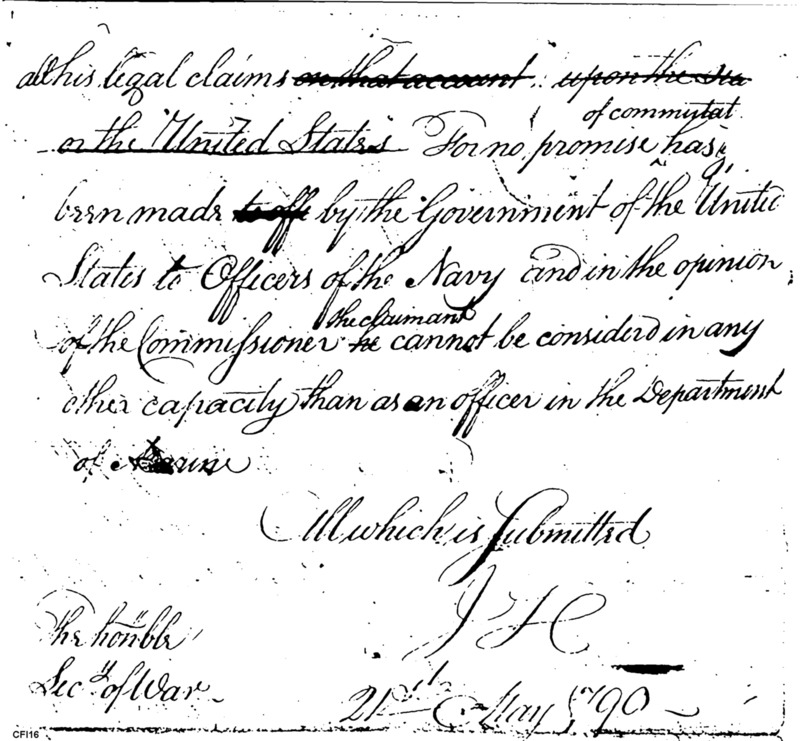 all his legal claims on that account. upon the Sta
of commutat
or the United States For no promise has
been made to offe by the Government of the United
States to Officers of the Navy and in the opinion
the claimant
of the Commissioner he cannot be considerd in any
other capacity than as an officer in the Department
of Marine
All which is Submitted
The honble
Secy of War
21st May 1790
CFI16